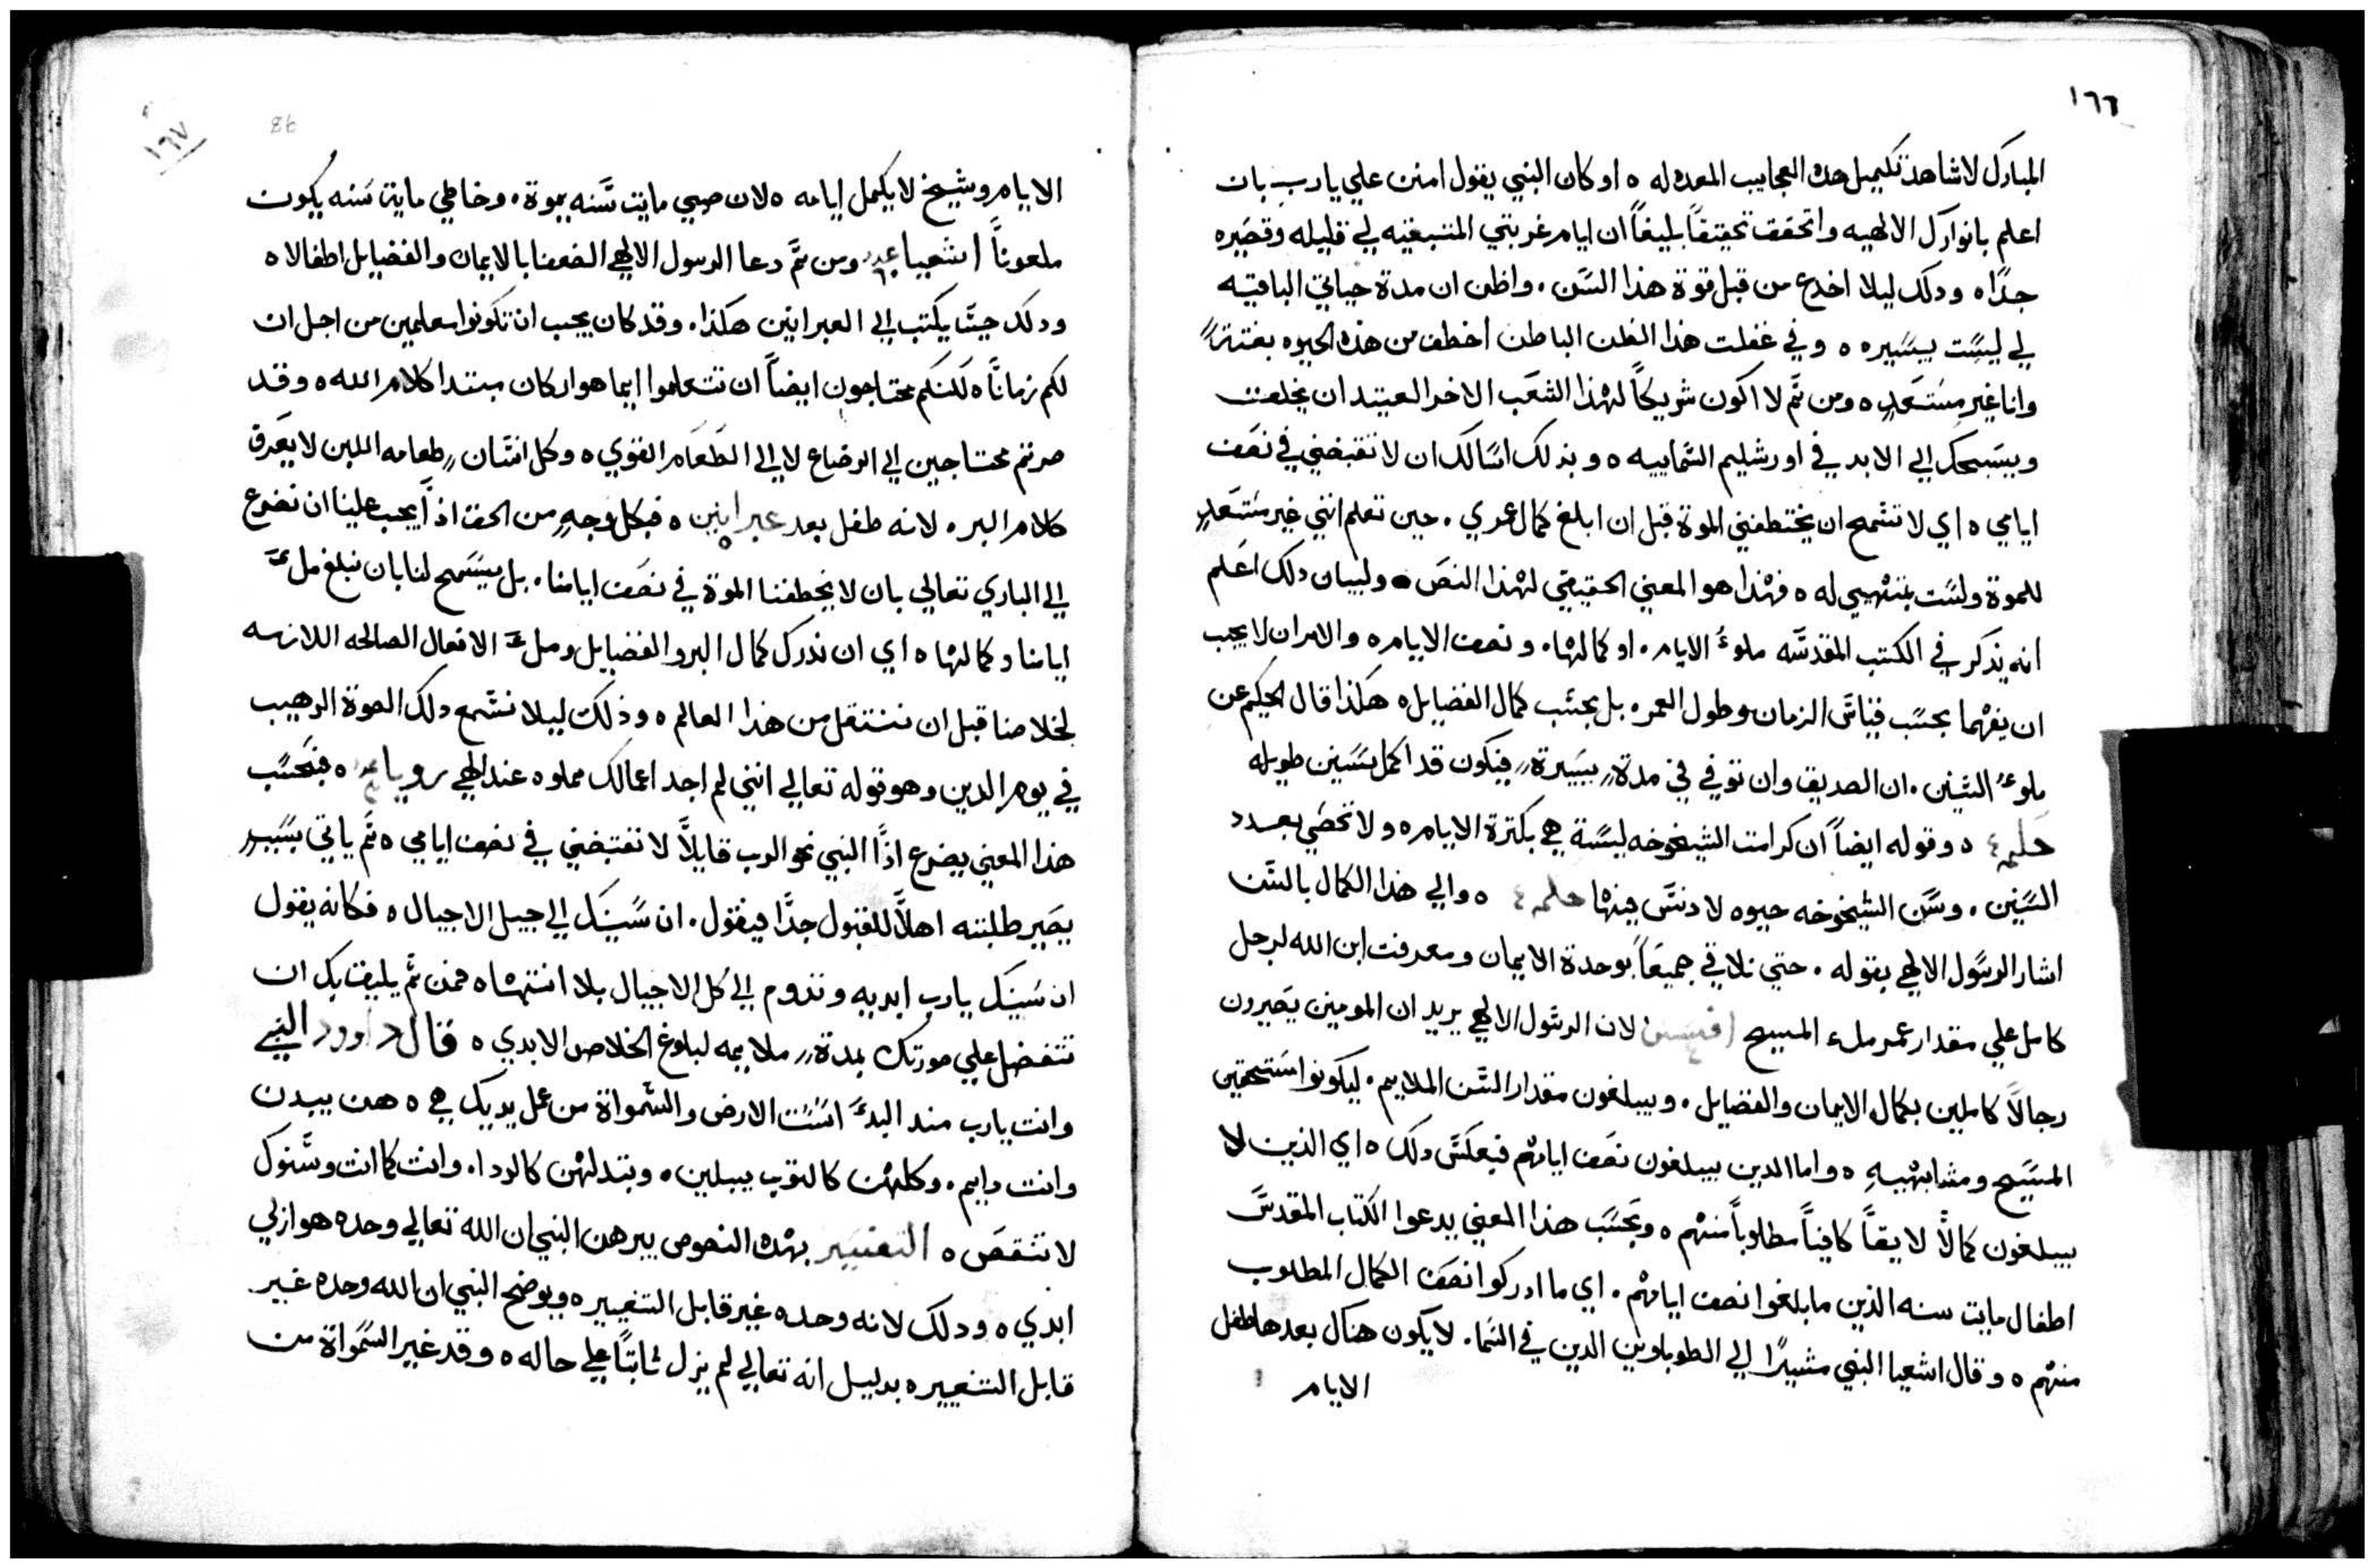 ١٦٦
المبارك لاشاهد تكميل هده العجاييب المعده له ٥ او كان النبي يقول امنن علي يارب بان
اعلم بانوارك الالهيه واتحقق تحقيقاً بليغاً ان ايام غربتي المتبقيه لي قليله وقصيره
جداً ٥ ودلك ليلا اخدع من قبل قوة هذا السن ٠ واظن ان مدة حياتي الباقيه
لي ليست يسيره ٥ وفي غفلت هذا الظن الباطن اخطف من هذه الحيوه بغتتةً
وانا غير مستعدٍ ٥ ومن ثم لا اكون شريكاً لهذا الشعب الاخر العتيد ان يخلق
ويسبحك الي الابد في اورشليم السماييه ٥ وبذلك اسالك ان لا تقبضني في نصف
ايامي ٥ اي لا تشمح ان يختطفني الموة قبل ان ابلغ كمال عمري ٠ حين تعلم انني غير مستعدٍ
للموة ولست بمتهيي له ٥ فهذا هو المعني الحقيقي لهذا النص ٥ ولبيان دلك اعلم
انه يذكر في الكتب المقدسه ملوءُ الايام ٠ او كمالها ٠ ونصف الايام ٥ والامران لا يجب
ان يفهما بحسب قياس الزمان وطول العمر ٥ بل بحسب كمال الفضايل ٥ هكذا قال الحكيم عن
ملوءُ السنين ٠ ان الصديق وان توفي في مدةٍ يسيرةٍ فيكون قد اكمل سنين طويله
حكمه ٤ ٥ وقوله ايضاً ان كرامت الشيخوخه ليسة هي بكترة الايام ٥ ولا تحصي بعدد
السنين ٠ وسن الشيخوخه حيوه لا دنس فيها حكمه ٤ ٥ والي هذا الكمال بالسن
اشار الرسول الالهي بقوله ٠ حتي نلاقي جميعاً بوحدة الايمان ومعرفت ابن الله لرجل
كامل علي مقدار عمر ملء المسيح افسس ٤ لان الرسول الالهي يريد ان المومنين يصيرون
رجالاً كاملين بكمال الايمان والفضايل ٠ ويبلغون مقدار السن الملايم ٠ ليكونوا مستحقين
المسيح ومشابهيهِ ٥ واما الدين يبلغون نصف ايامهم فبعكس دلك ٥ اي الذين لا
يبلغون كمالاً لايقاً كافياً مطلوباً منهم ٥ وبحسب هذا المعني يدعوا الكتاب المقدس
اطفال مايت سنه الذين ما بلغوا نصف ايامهم ٠ اي ما ادركوا نصف الكمال المطلوب
منهم ٥ وقال اشعيا النبي مشيراً الي الطوباويين الدين في السما ٠ لا يكون هناك بعدها طفل
الايام
١٦٧
86
الايام وشيخ لا يكمل ايامه ٥ لان صبي مايت سنه يموة ٠ وخاطي ماية سنه يكون
ملعوناً اشعيا ومن ثم دعا الرسول الالهي الضعفا بالايمان والفضايل اطفالا ٥
ودلك حيت يكتب الي العبرانين هكذا ٠ وقد كان يجب ان تكونوا معلمين من اجل ان
لكم زماناً ٥ لكنكم محتاجون ايضاً ان تتعلموا ايما هو اركان مبتدا كلام الله ٥ وقد
صرتم محتاجين الي الرضاع لا الي الطعام القوي ٥ وكل انسان طعامه اللبن لا يعرف
كلام البر ٠ لانه طفل بعد عبرانين ٥ فبكل وجهٍ من الحق اذاً يجب علينا ان نضرع
الي الباري تعالي بان لا يخطفنا الموة في نصف ايامنا ٠ بل يسمح لنا بان نبلغ ملءَ
ايامنا وكمالها ٥ اي ان ندرك كمال البر والفضايل وملءَ الافعال الصالحه اللازمه
لخلاصنا قبل ان ننتقل من هذا العالم ٥ وذلك ليلا نسمع دلك الصوة الرهيب
في يوم الدين وهو قوله تعالي انني لم اجد اعمالك مملوه عند الهي رويا ٥ فبحسب
هذا المعني يضرع اذاً النبي نحو الرب قايلاً لا تقبضني في نصف ايامي ٥ ثم ياتي بسببٍ
يصير طلبته اهلاً للقبول جداً فيقول ٠ ان سنينك الي جيل الاجيال ٥ فكانه يقول
ان سنينك يارب ابديه وتدوم الي كل الاجيال بلا انتها ٥ فمن ثم يليق بك ان
تتفضل علي صورتك بمدةٍ ملايمه لبلوغ الخلاص الابدي ٥ قال داوود النبي
وانت يارب مند البدءَ اسست الارض والسمواة من عمل يديك هي ٥ هن يبدن
وانت دايم ٠ وكلهن كالتوب يبلين ٠ وبتدلهن كالردا ٠ وانت كما انت وسنوك
لا تنقص ٥ التفسير بهذه النصوص يبرهن النبي ان الله تعالي وحده هو ازلي
ابدي ٥ ودلك لانه وحده غير قابل التغيير ٥ ويوضح النبي ان الله وحده غير
قابل التغيير ٥ بدليل انه تعالي لم يزل ثابتاً علي حاله ٥ وقد غير السمواة من